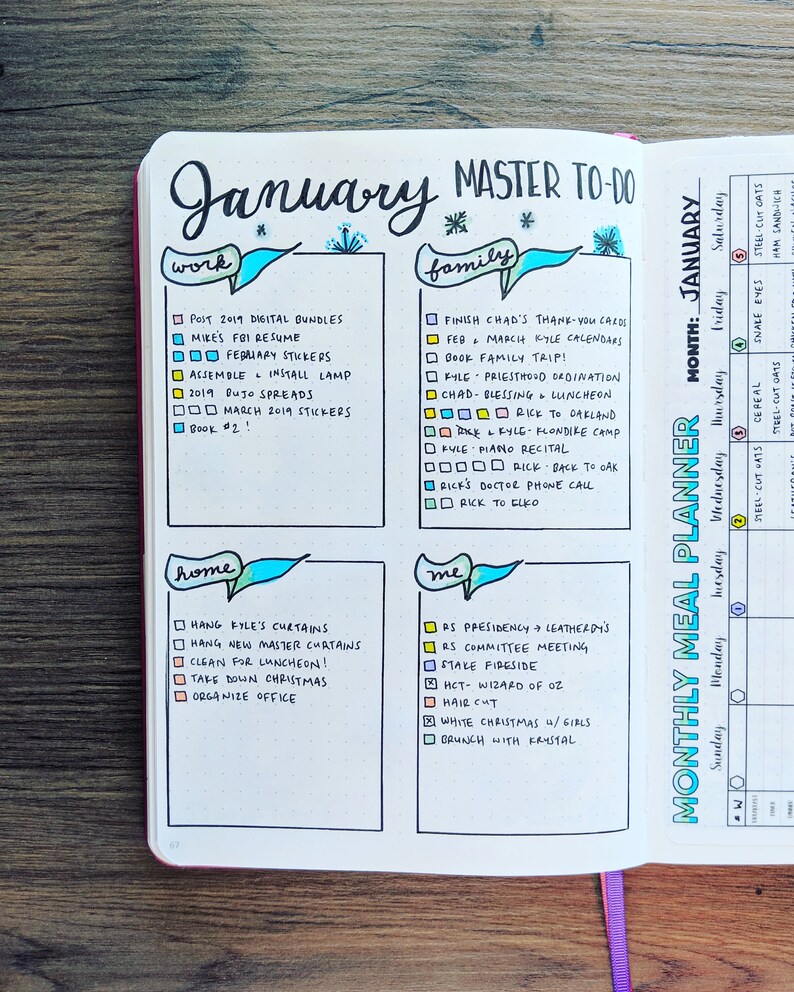 January MASTER TO-DO
work
POST 2019 DIGITAL BUNDLES
MIKE'S FBI RESUME
FEBRUARY STICKERS
ASSEMBLE & INSTALL LAMP
2019 BUJO SPREADS
MARCH 2019 STICKERS
BOOK #2!
family
FINISH CHAD'S THANK-YOU CARDS
FEB & MARCH KYLE CALENDARS
BOOK FAMILY TRIP!
KYLE - PRIESTHOOD ORDINATION
CHAD - BLESSING & LUNCHEON
RICK TO OAKLAND
RICK & KYLE - KLONDIKE CAMP
KYLE - PIANO RECITAL
RICK - BACK TO OAK
RICK'S DOCTOR PHONE CALL
RICK TO ELKO
home
HANG KYLE'S CURTAINS
HANG NEW MASTER CURTAINS
CLEAN FOR LUNCHEON!
TAKE DOWN CHRISTMAS
ORGANIZE OFFICE
me
RS PRESIDENCY → LEATHERBY'S
RS COMMITTEE MEETING
STAKE FIRESIDE
HCT - WIZARD OF OZ
HAIR CUT
WHITE CHRISTMAS W/ GIRLS
BRUNCH WITH KRYSTAL
67
MONTHLY MEAL PLANNER MONTH: JANUARY
Sunday Monday Tuesday Wednesday Thursday Friday Saturday
# W 1 2 3 4 5
STEEL-CUT OATS CEREAL SNAKE EYES STEEL-CUT OATS
STEEL-CUT OATS HAM SANDWICH